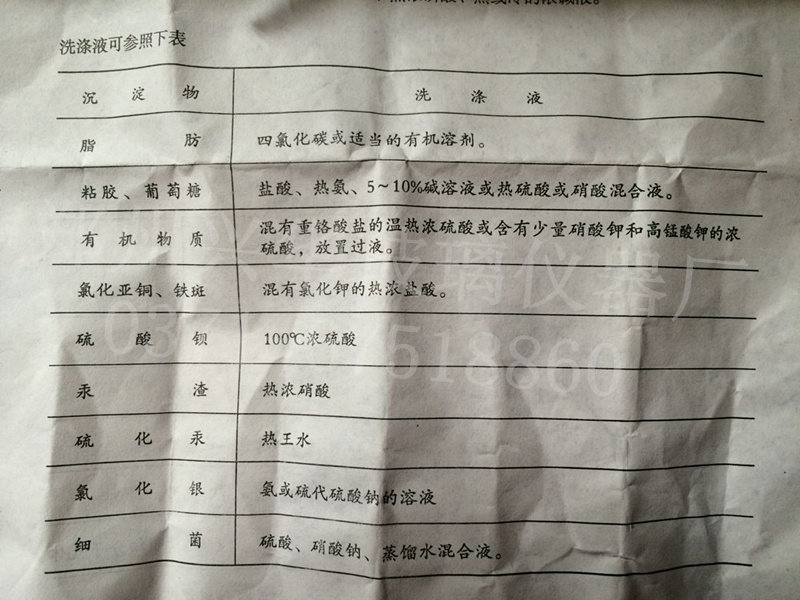 洗涤液可参照下表
沉淀物 洗涤液
脂肪 四氯化碳或适当的有机溶剂。
粘胶、葡萄糖 盐酸、热氨、5～10%碱溶液或热硫酸或硝酸混合液。
有机物质 混有重铬酸盐的温热浓硫酸或含有少量硝酸钾和高锰酸钾的浓
硫酸，放置过液。
氯化亚铜、铁斑 混有氯化钾的热浓盐酸。
硫酸钡 100℃浓硫酸
汞渣 热浓硝酸
硫化汞 热王水
氯化银 氨或硫代硫酸钠的溶液
细菌 硫酸、硝酸钠、蒸馏水混合液。
玻璃仪器厂
1518860